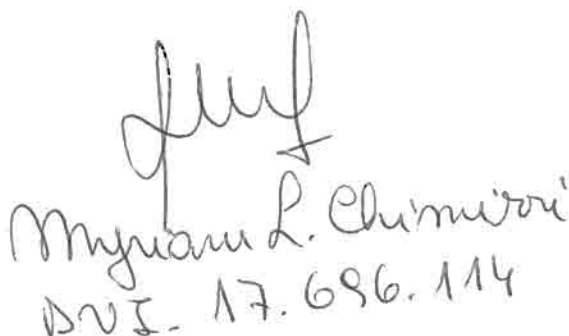 Myriam L. Chimirri
DNI. 17.696.114